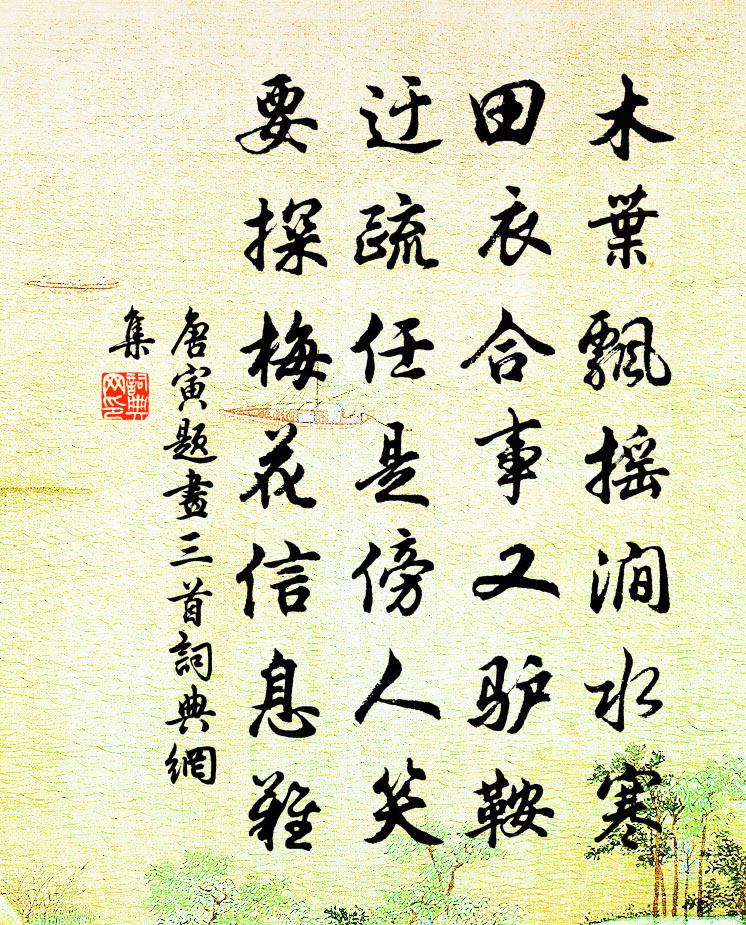 木葉飄摇澗水寒
田衣合事又驴鞍
迂疏任是傍人笑
要探梅花信息難
唐寅題畫三首詞典網
集
詞典
网印